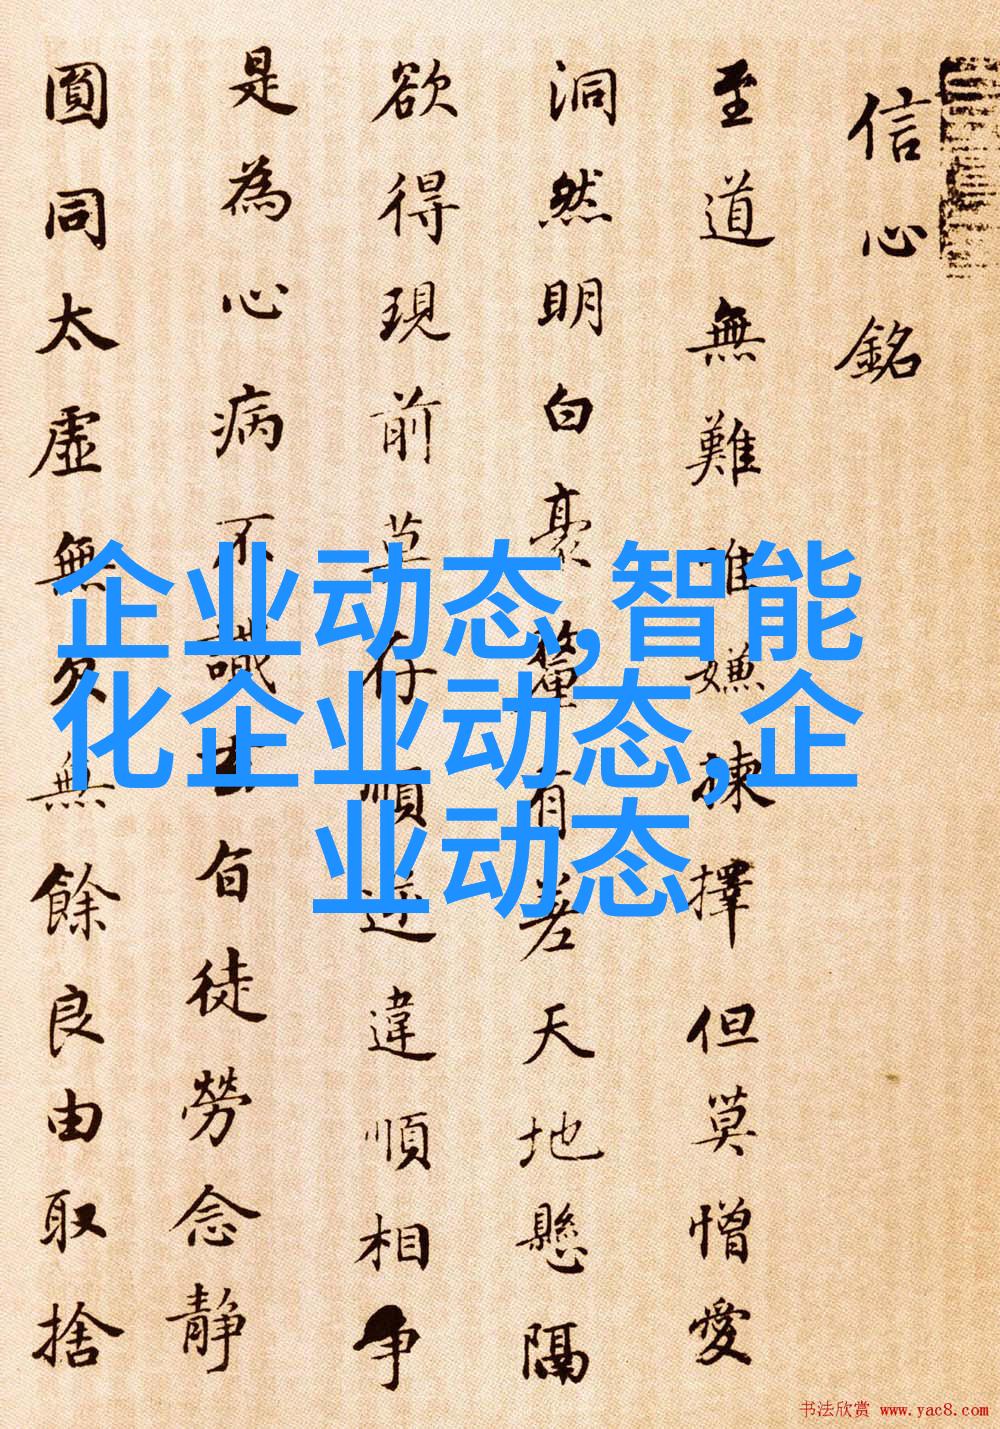 信心銘
至道無難唯嫌揀擇但莫憎愛
洞然明白豪釐有差天地懸隔
欲得現前莫存順逆違順相爭
是為心病不識玄旨徒勞念靜
圓同太虛無欠無餘良由取捨
企业动态,智能
化企业动态,企
业动态
书法欣赏 www.yac8.com